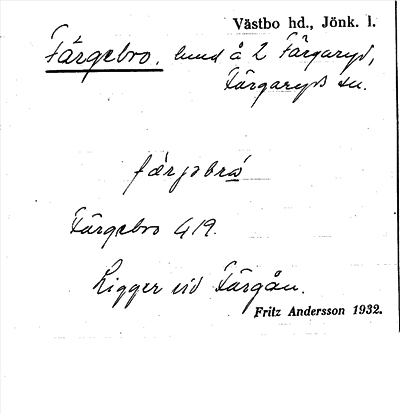 Västbo hd., Jönk. l.
Färgebro. lund å 2 Färgaryd,
Färgaryds sn.
færjəbrɷ́
Färgebro G 19.
Ligger vid Färgån.
Fritz Andersson 1932.